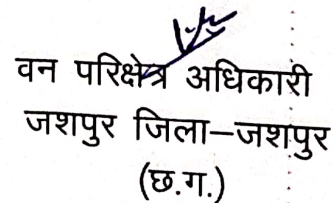 वन परिक्षेत्र अधिकारी
जशपुर जिला–जशपुर
(छ.ग.)